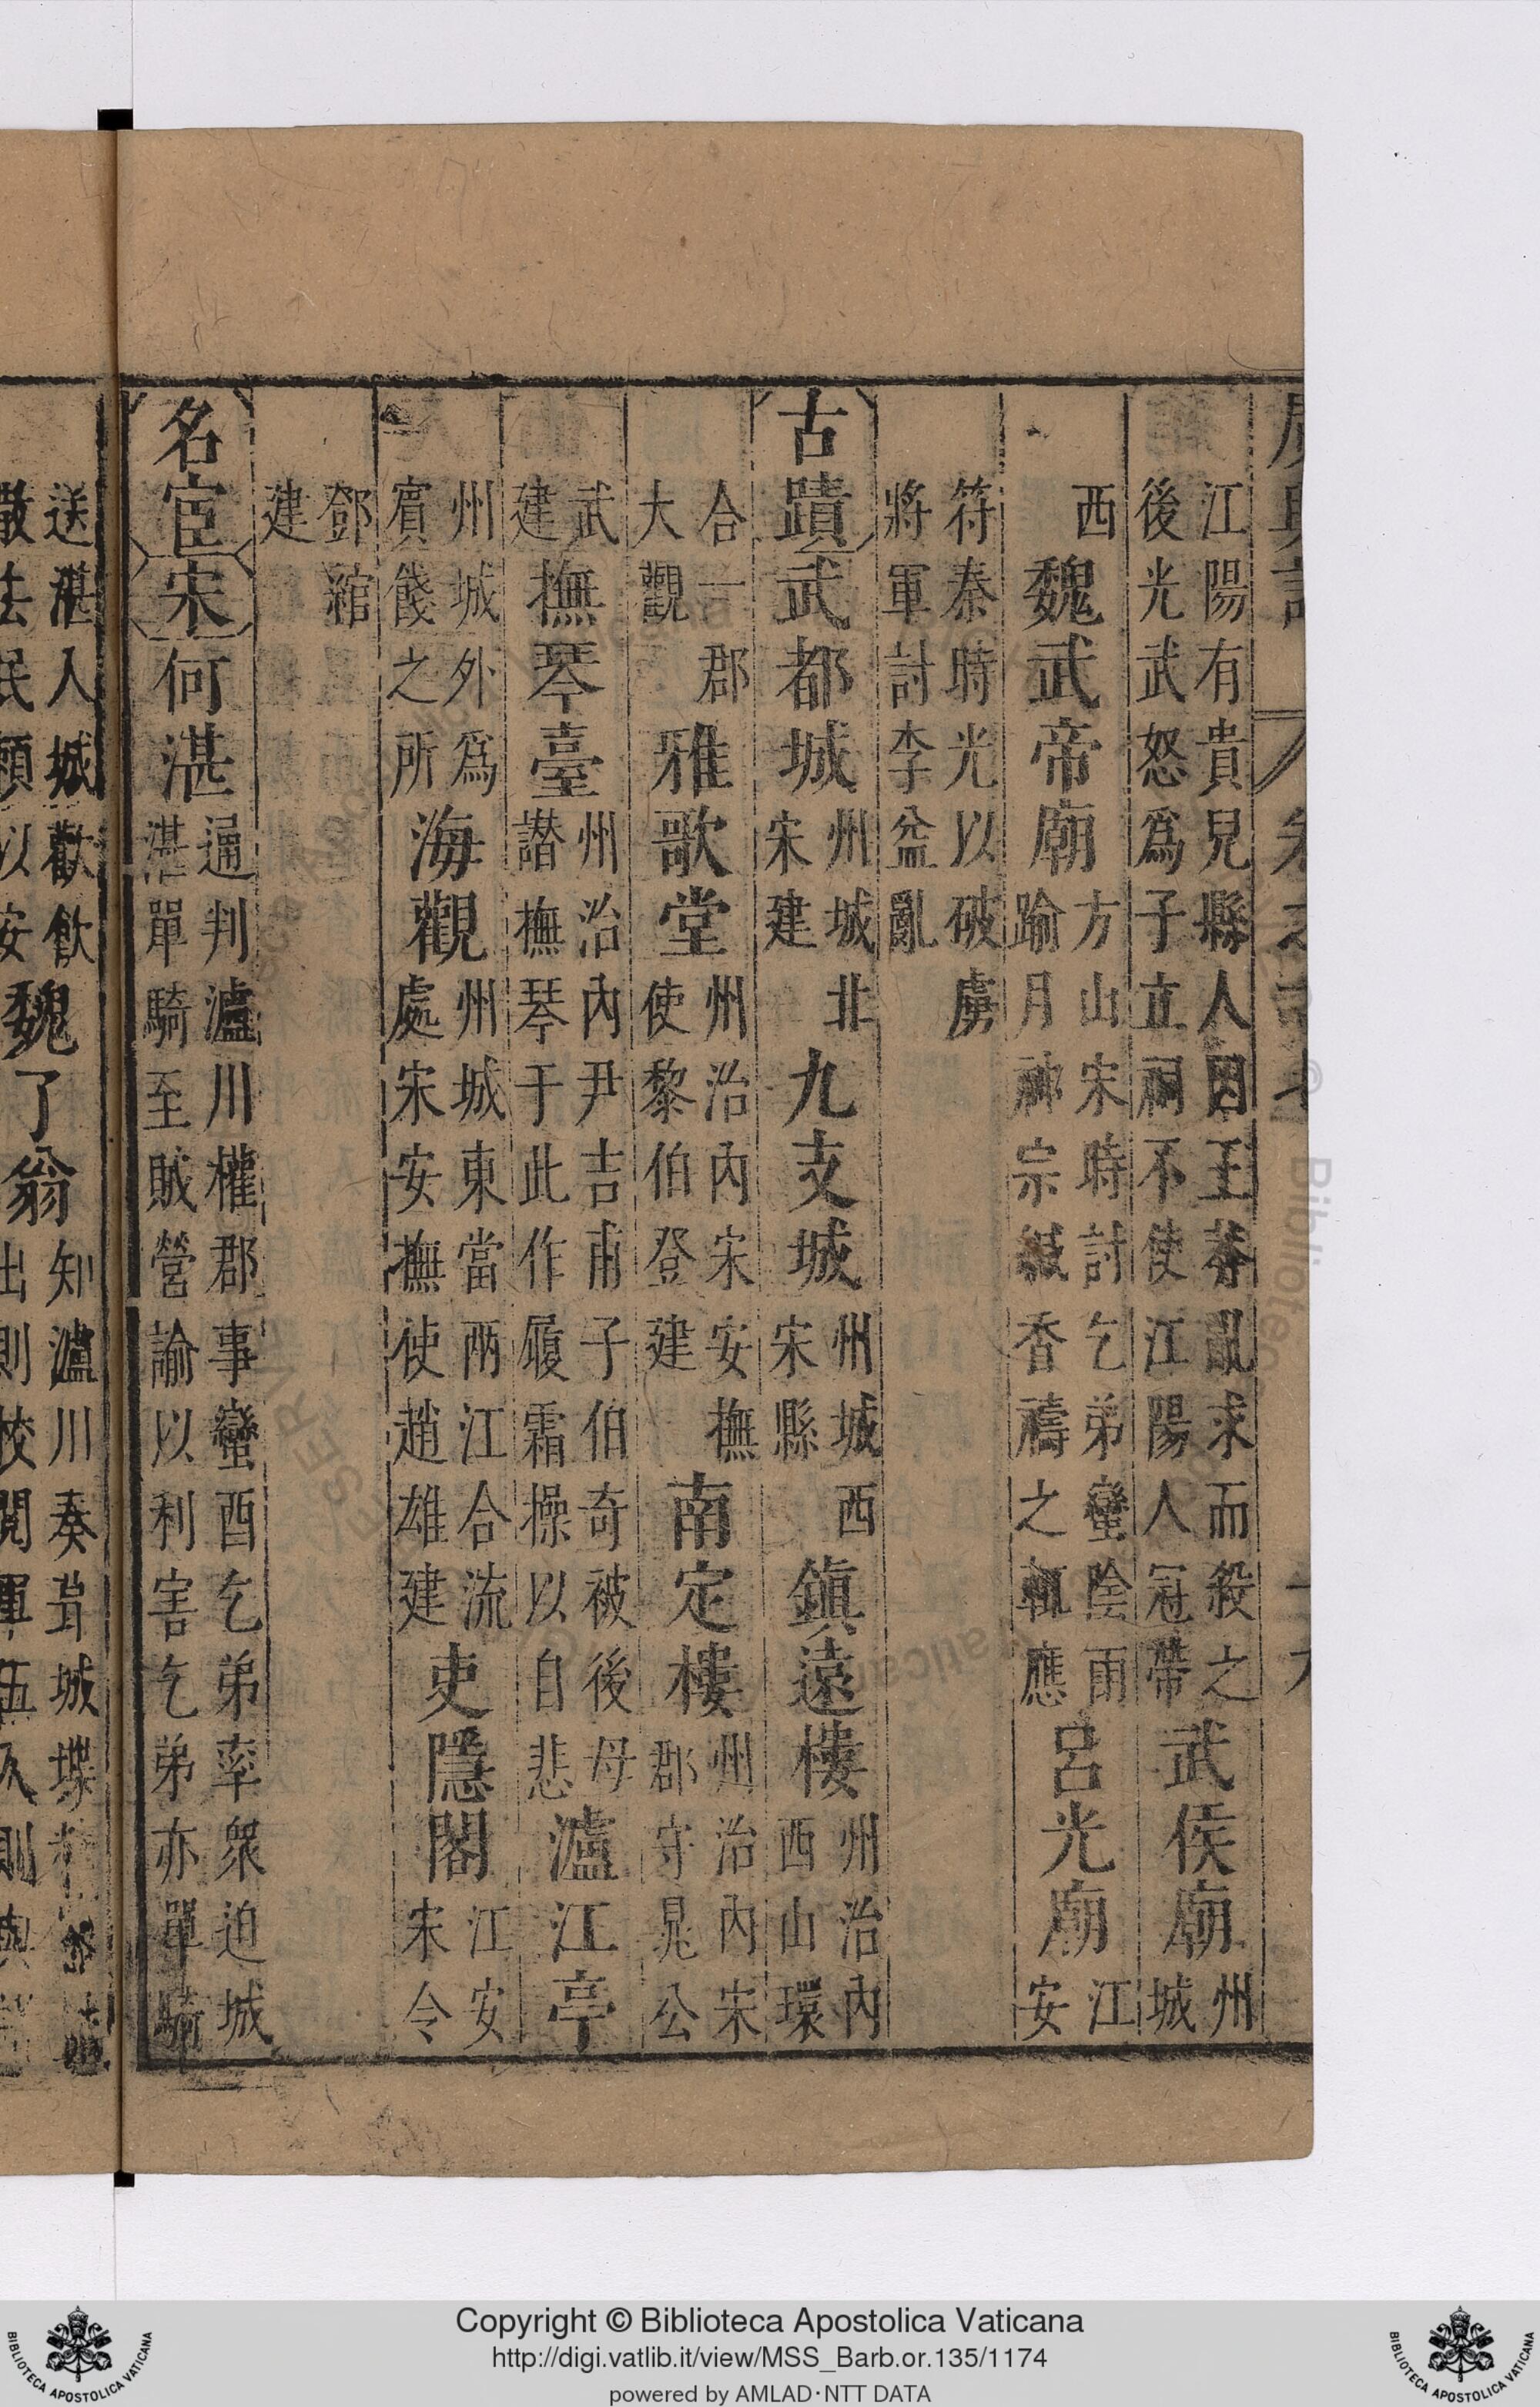 江陽有貴兒縣人因王莽亂求而殺之
後光武怒爲子立祠不使江陽人冠帶
武侯廟
州城
西
魏武帝廟
方山宋時討乞弟蠻陰雨
踰月神宗緘香禱之輒應
呂光廟
江安
符秦時光以破虜
將軍討李益亂
古蹟
武都城
州城北
宋建
九支城
州城西
宋縣
鎮遠樓
州治內
西山環
合一郡
大觀
雅歌堂
州治內宋安撫
使黎伯登建
南定樓
州治內宋
郡守晁公
武
建
撫琴臺
州治內尹吉甫子伯奇被後母
譖撫琴于此作履霜操以自悲
瀘江亭
州城外爲
賓餞之所
海觀
州城東當兩江合流
處宋安撫使趙雄建
吏隱閣
江安
宋令
鄧綰
建
名宦
宋
何湛
通判瀘川權郡事蠻酋乞弟率衆迫城
湛單騎至賊營諭以利害乞弟亦單騎
送湛入城歡飲
魏了翁
知瀘川奏葺城堞
Copyright © Biblioteca Apostolica Vaticana
http://digi.vatlib.it/view/MSS_Barb.or.135/1174
powered by AMLAD·NTT DATA
BIBLIOTECA APOSTOLICA VATICANA
BIBLIOTECA APOSTOLICA VATICANA